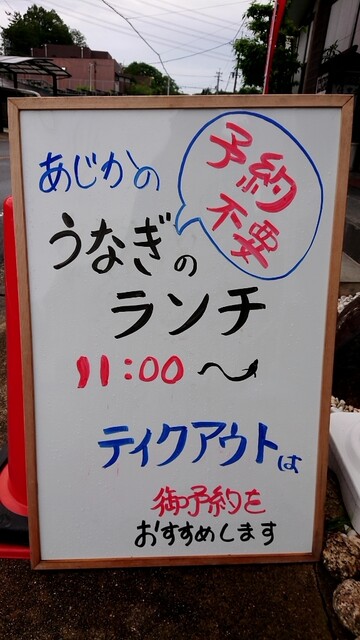 あじかの
予約
不要
うなぎの
ランチ
11:00〜
ティクアウトは
御予約を
おすすめします